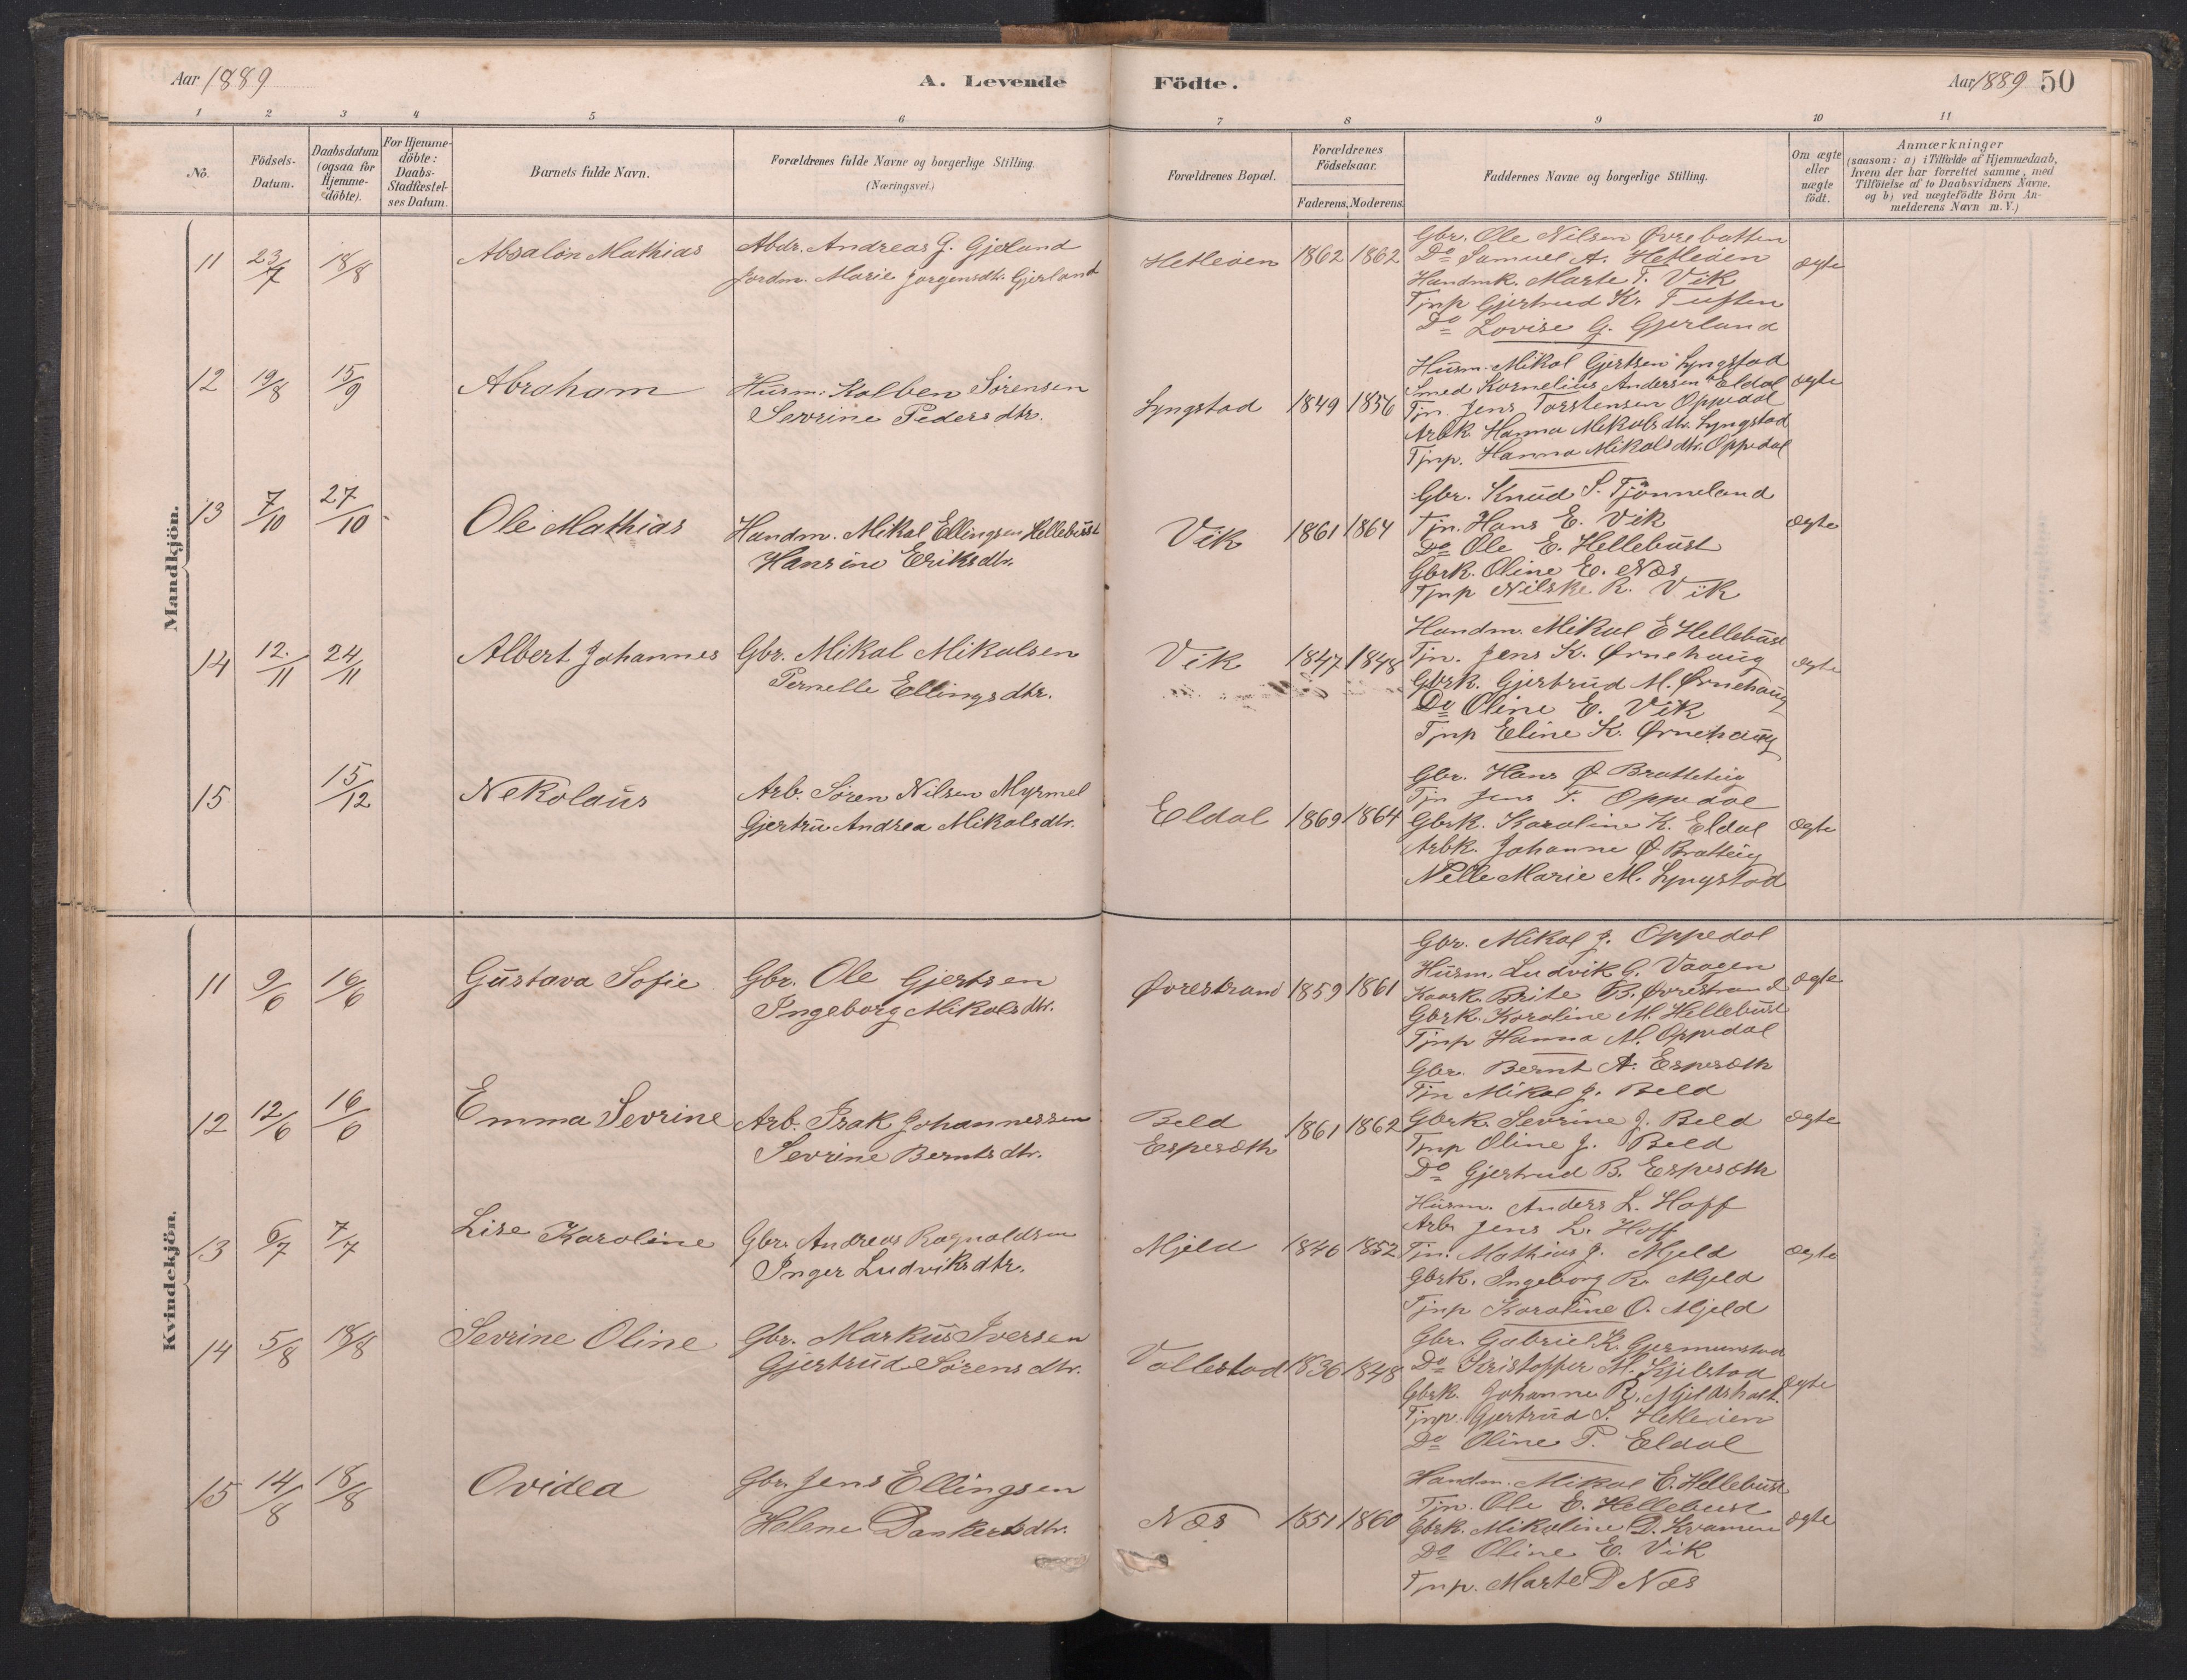 Aar 1889
A. Levende
Födte.
Aar 1889 50
1 2 3 4 5 6 7 8 9 10 11
No.
Födsels-
Datum.
Daabsdatum
(ogsaa for
Hjemme-
döbte).
For Hjemme-
döbte:
Daabs-
Stadfæstel-
ses Datum.
Barnets fulde Navn.
Forældrenes fulde Navne og borgerlige Stilling.
(Næringsvei.)
Forældrenes Bopæl.
Forældrenes
Födselsaar.
Faderens. Moderens.
Faddernes Navne og borgerlige Stilling.
Om ægte
eller
uægte
födt.
Anmærkninger
(saasom: a) i Tilfælde af Hjemmedaab,
hvem der har forrettet samme, med
Tilföielse af to Daabsvidners Navne,
og b) ved uægtefödte Börn An-
melderens Navn m. V.)
Mandkjön.
11 23/7 18/8 Absalon Mathias
Abdr. Andreas G. Gjerland
Jordm. Marie Jørgensdtr. Gjerland
Hetleøen 1862 1862
Gbr. Ole Nilsen Øvrebotten
Do Samuel A. Hetleøen
Handmk. Marte T. Vik
Tjnp Gjertrud K. Tuften
Do Lovise G. Gjerland
ægte
12 19/8 15/9 Abraham
Husm. Kolben Sørensen
Sevrine Pedersdtr.
Lyngstad 1849 1856
Husm. Mikal Gjertsen Lyngstad
Smed Kornelius Andersen Eldal
Tjn. Jens Torstensen Oppedal
Arbk. Hanna Mikalsdtr. Lyngstad
Tjnp. Hanna Mikalsdtr. Oppedal
ægte
13 7/10 27/10 Ole Mathias
Handm. Mikal Ellingsen Hellebust
Hansine Eriksdtr.
Vik 1861 1864
Gbr. Knud S. Tjønneland
Tjn. Hans E. Vik
Do Ole E. Hellebust
Gbrk. Oline E. Næs
Tjnp Nilske R. Vik
ægte
14 12/11 24/11 Albert Johannes
Gbr. Mikal Mikalsen
Pernelle Ellingsdtr.
Vik 1847 1848
Handm. Mikal E Hellebust
Tjn. Jens K. Ørnehaug
Gbrk. Gjertrud M. Ørnehaug
Do Oline E. Vik
Tjnp Eline K. Ørnehaug
ægte
15 15/12 Nekolaus
Arb. Søren Nilsen Myrmel
Gjertru Andrea Mikalsdtr.
Eldal 1869 1864
Gbr. Hans Ø Bratteteig
Tjn Jens T. Oppedal
Gbrk. Karoline K. Eldal
Arbk. Johanne Ø Bratteig
Nelle Marie M. Lyngstad
ægte
Kvindekjön.
11 9/6 16/6 Gustava Sofie
Gbr. Ole Gjertsen
Ingeborg Mikalsdtr.
Øvrestrand 1859 1861
Gbr. Mikal J. Oppedal
Husm. Ludvik G. Vaagen
Kaark. Brite B. Øvrestrand
Gbrk. Karoline M. Hellebust
Tjnp Hanna M. Oppedal
ægte
12 12/6 16/6 Emma Sevrine
Arb. Isak Johannessen
Sevrine Berntsdtr.
Beld
Espesæth
1861 1862
Gbr. Bernt A. Espesæth
Tjn Mikal J. Beld
Gbrk. Sevrine J. Beld
Tjnp Oline J. Beld
Do Gjertrud B. Espesæth
ægte
13 6/7 7/7 Lise Karoline
Gbr. Andreas Ragnaldsen
Inger Ludviksdtr.
Mjeld 1846 1852
Husm. Anders L. Hoff
Arb. Jens L. Hoff
Tjn. Mathias J. Mjeld
Gbrk. Ingeborg R. Mjeld
Tjnp Karoline O. Mjeld
ægte
14 5/8 18/8 Sevrine Oline
Gbr. Markus Iversen
Gjertrud Sørensdtr.
Vallestad 1836 1848
Gbr. Gabriel K. Gjermunstad
Do Kristoffer M. Kjelstad
Gbrk. Johanne R. Mjeldsholt.
Tjnp. Gjertrud S. Hetleøen
Do Oline P. Eldal
ægte
15 14/8 18/8 Ovidea
Gbr. Jens Ellingsen
Helene Dankertsdtr.
Næs 1851 1860
Handm. Mikal E. Hellebust
Tjn. Ole E. Hellebust
Gbrk. Mikaline D. Kvamen
Do Oline E. Vik
Tjnp. Marte D Næs
ægte